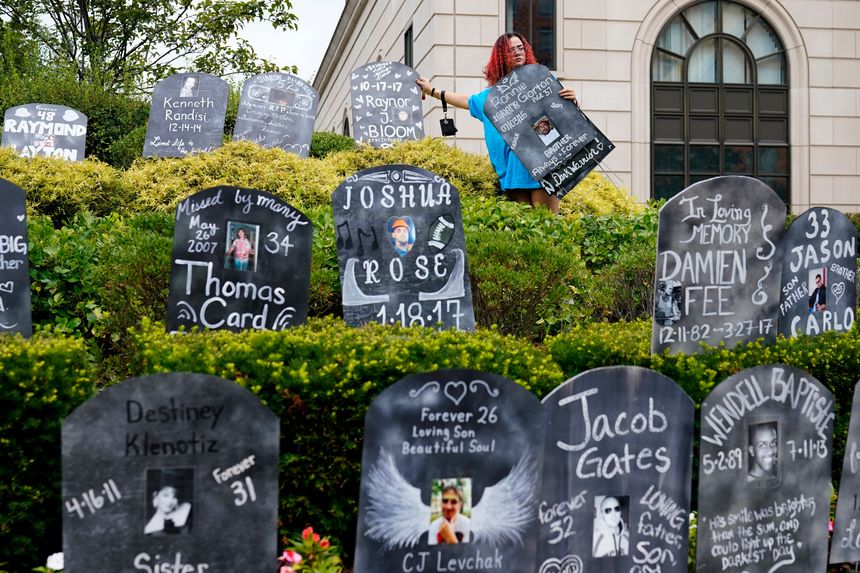 48
RAYMOND
Kenneth
Randisi
12-14-14
R.I.P.
10-17-17
Raynor
J.
BLOOM
Ronnie
Gorton
BROTHER
Always & Forever
BIG
Missed by many
May
26
2007
34
Thomas
Card
JOSHUA
ROSE
1.18.17
In Loving
MEMORY
DAMIEN
FEE
12-11-82 ~ 3-27-17
33
JASON
SON
BROTHER
FATHER
CARLO
Destiney
Klenotiz
4-16-11
Forever
31
Sister
Forever 26
Loving Son
Beautiful Soul
CJ Levchak
Jacob
Gates
Forever
32
LOVING
father
son
WENDELL BAPTISTE
5-2-89
7-11-13
His smile was brighter
than the sun, and
could light up the
DARKEST DAY